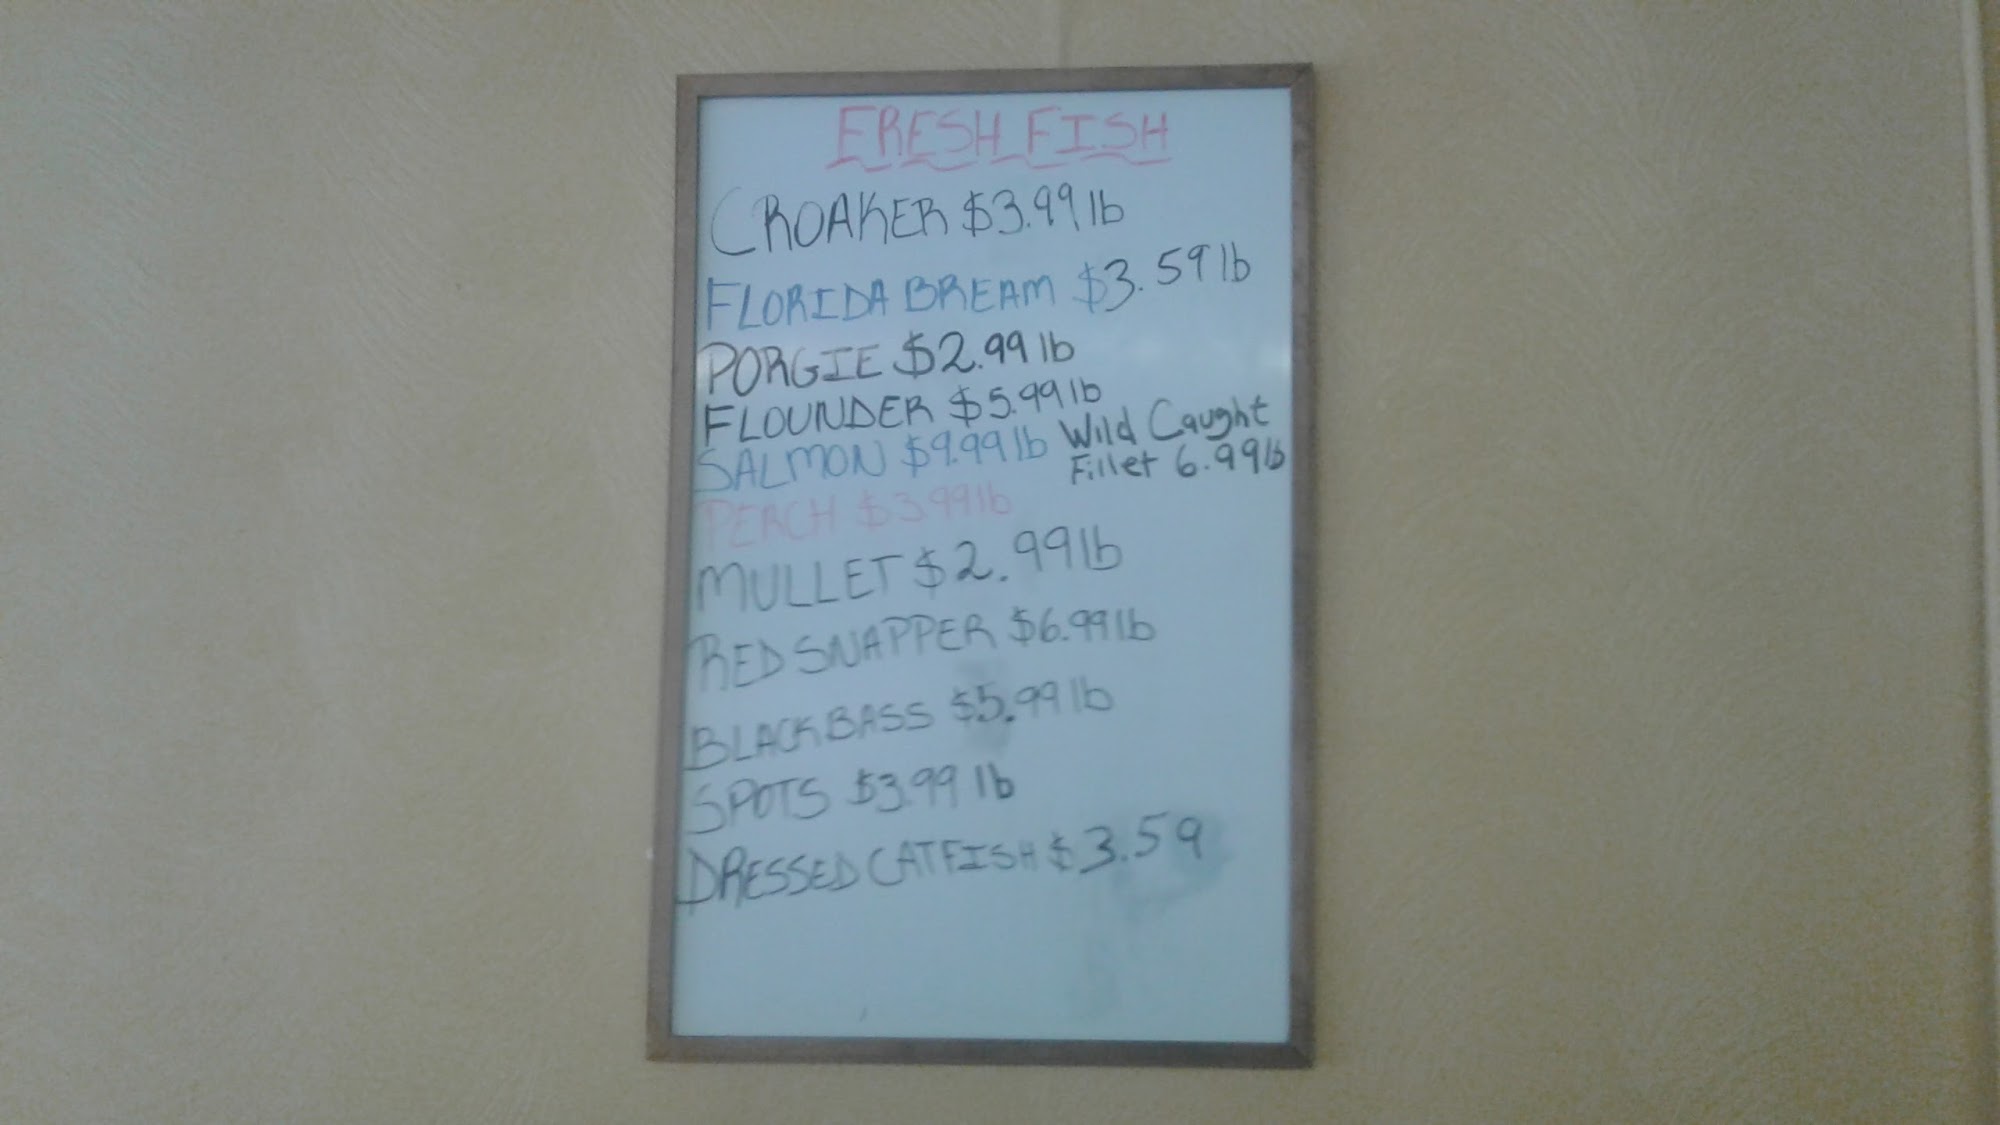 FRESH FISH
CROAKER $3.99 lb
FLORIDA BREAM $3.59 lb
PORGIE $2.99 lb
FLOUNDER $5.99 lb
SALMON $9.99 lb Wild Caught
Fillet 6.99 lb
PERCH $3.99 lb
MULLET $2.99 lb
RED SNAPPER $6.99 lb
BLACK BASS $5.99 lb
SPOTS $3.99 lb
DRESSED CATFISH $3.59